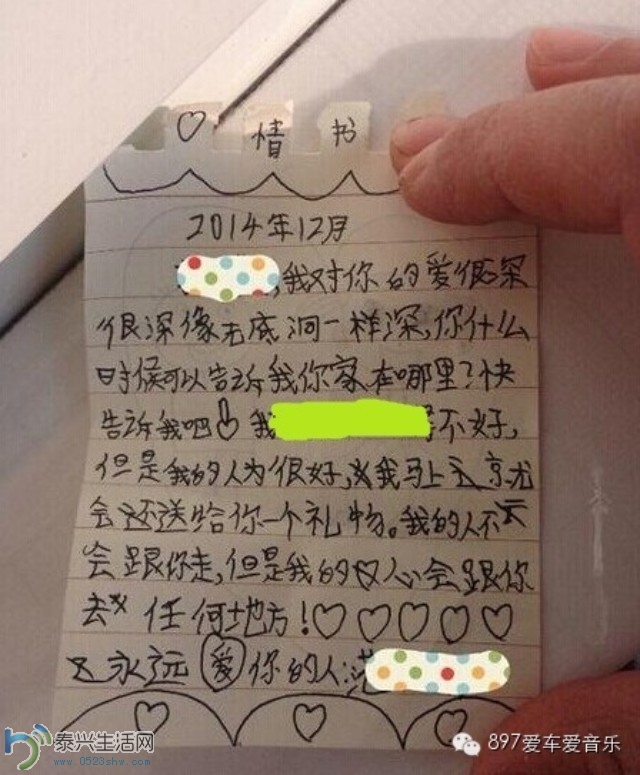 情书
2014年12月
,我对你的爱很深
很深像无底洞一样深,你什么
时候可以告诉我你家在哪里?快
告诉我吧 我 不好,
但是我的人为很好,我马上 京尤
会还送给你一个礼物。我的人不
会跟你走,但是我的心会跟你
去 任何地方!
永远爱你的人:
泰兴生活网
www.0523shw.com
897爱车爱音乐